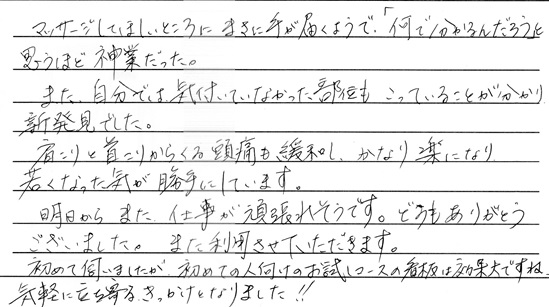 マッサージしてほしいところに まさに手が届くようで、「何で分かるんだろう」と
思うほど 神業だった。
また、自分では気付いていなかった部位も こっていることが分かり
新発見でした。
肩こりと首こりからくる頭痛も緩和し、かなり楽になり
若くなった気が勝手にしています。
明日から また、仕事が頑張れそうです。どうもありがとう
ございました。 また利用させていただきます。
初めて伺いましたが、初めての人向けのお試しコースの看板は効果大ですね
気軽に立ち寄るきっかけとなりました!!